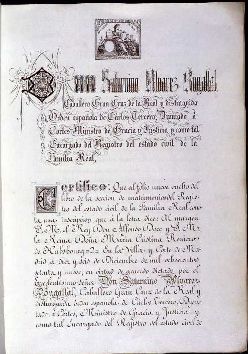 Don Saturnino Alvarez Bugallal
Caballero Gran Cruz de la Real y distinguida
Orden española de Carlos Tercero, Diputado á
Cortes Ministro de Gracia y Justicia, y como tal
Encargado del Registro del estado civil de la
Familia Real,
Certifico: Que al folio nueve vuelto del
libro de la sección de matrimonios del Regis-
tro del estado civil de la Familia Real cons-
ta una inscripcion que á la letra dice: Al margen
S. M. el Rey Don Alfonso Doce y S. M.
la Reina Doña Maria Cristina
de Habsbourg En la Villa y Corte de Madrid
á diez y seis de Diciembre de mil ochocientos
setenta y nueve; en virtud de acuerdo dictado por el
Excelentisimo Señor Don Saturnino Alvarez
Bugallal, Caballero Gran Cruz de la Real y
distinguida orden española de Carlos Tercero, Dipu-
tado á Cortes, Ministro de Gracia y Justicia y
como tal Encargado del Registro del estado civil de